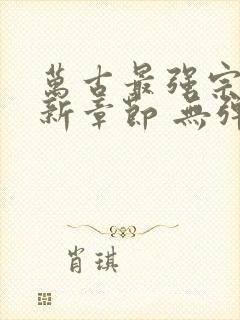 萬古最强宗
新章節 無弹
肖琪